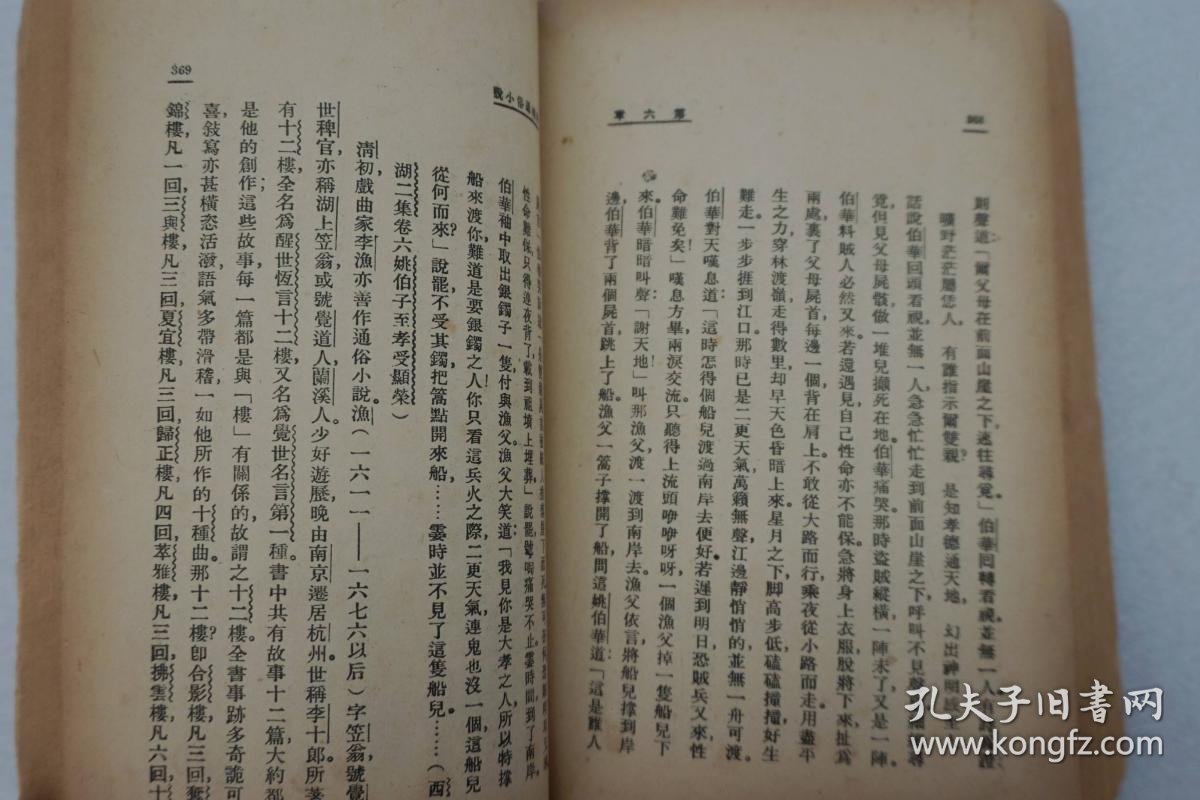 第六章
則聲道「爾父母在前面山崖之下速往尋覓。」伯華回轉看視並無一人有
曠野茫茫屬恁人　有誰指示爾雙親　是知孝德通天地　幻出神明
話說伯華回頭看視並無一人急急忙忙走到前面山崖之下呼叫不見聲
覓但見父母屍骸做一堆兒攧死在地伯華痛哭那時盜賊縱橫一陣未了又是一陣
伯華料賊人必然又來若還遇見自己性命亦不能保急將身上衣服脫將下來扯爲
兩處裹了父母屍首每邊一個背在肩上不敢從大路而行乘夜從小路而走用盡平
生之力穿林渡嶺走得數里却早天色昏暗上來星月之下脚高步低磕磕撞撞好生
難走一步步捱到江口那時已是二更天氣萬籟無聲江邊靜悄悄的並無一舟可渡。
伯華對天嘆息道：「這時怎得個船兒渡過南岸去便好若遲到明日恐賊兵又來性
命難免矣」嘆息方畢兩淚交流只聽得上流頭咿咿呀呀一個漁父掉一隻船兒下
來伯華暗暗叫聲：「謝天地」叫那漁父渡一渡到南岸去漁父依言將船兒撐到岸
邊伯華背了兩個屍首跳上了船漁父一篙子撐開了船問這姚伯華道：「這是誰人
369
性命難保只得連夜背了數到祖墳上埋葬」說罷號啕痛哭不止霎時間到了南岸，
伯華袖中取出銀鐲子一隻付與漁父漁父大笑道：「我見你是大孝之人所以特撐
船來渡你難道是要銀鐲之人！你只看這兵火之際，二更天氣連鬼也沒一個，這船兒
從何而來？」說罷不受其鐲把篙點開來船⋯⋯霎時並不見了這隻船兒⋯⋯（西
湖二集卷六姚伯子至孝受顯榮）
清初戲曲家李漁亦善作通俗小說漁（一六一一——一六七六以后）字笠翁號覺
世稗官亦稱湖上笠翁或號覺道人蘭溪人。少好遊歷晚由南京遷居杭州世稱李十郎。所著
有十二樓全名爲醒世恆言十二樓又名爲覺世名言第一種。書中共有故事十二篇大約都
是他的創作；這些故事每一篇都是與「樓」有關係的故謂之十二樓。全書事跡多奇詭可
喜敍寫亦甚橫恣活潑語氣多帶滑稽一如他所作的十種曲。那十二樓？卽合影樓凡三回奪
錦樓凡一回三與樓凡三回，夏宜樓凡三回歸正樓凡四回，萃雅樓凡三回，拂雲樓凡六回十
孔夫子旧书网
www.kongfz.com